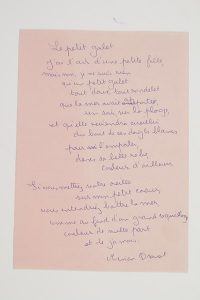 Le petit galet
J'ai l'air d'une petite fille
mais moi, je ne suis rien
qu'un petit galet
tout doux, tout rondelet
que la mer avait
un soir, sur la plage,
et qu'elle reviendra cueillir
du bout de ses doigts blancs
pour l'emporter
dans sa belle robe
couleur d'ailleurs
Si vous mettez votre oreille
sur mon petit coeur,
vous entendrez battre la mer
comme au fond d'un grand coquillage
couleur de nulle part
et de jamais.